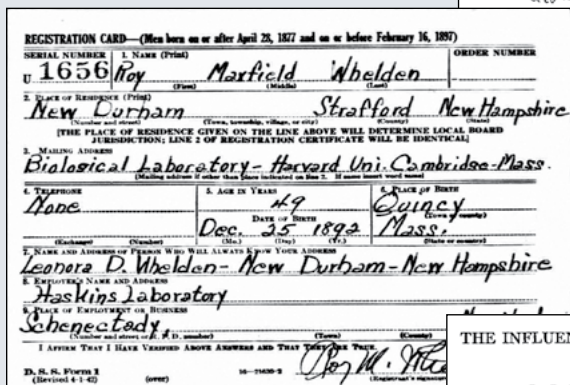 REGISTRATION CARD—(Men born on or after April 28, 1877 and on or before February 16, 1897)
SERIAL NUMBER 1. NAME (Print) ORDER NUMBER
U 1656 Roy Maxfield Whelden
(First) (Middle) (Last)
2. PLACE OF RESIDENCE (Print)
New Durham Strafford New Hampshire
(Number and street) (Town, township, village, or city) (County) (State)
[THE PLACE OF RESIDENCE GIVEN ON THE LINE ABOVE WILL DETERMINE LOCAL BOARD
JURISDICTION; LINE 2 OF REGISTRATION CERTIFICATE WILL BE IDENTICAL]
3. MAILING ADDRESS
Biological Laboratory - Harvard Uni. Cambridge - Mass.
(Mailing address if other than place indicated on line 2. If same insert word same)
4. TELEPHONE 5. AGE IN YEARS 6. PLACE OF BIRTH
None 49 Quincy
DATE OF BIRTH (Town or county)
Dec. 25 1892 Mass.
(Exchange) (Number) (Mo.) (Day) (Yr.) (State or country)
7. NAME AND ADDRESS OF PERSON WHO WILL ALWAYS KNOW YOUR ADDRESS
Leonora D. Whelden - New Durham - New Hampshire
8. EMPLOYER'S NAME AND ADDRESS
Haskins Laboratory
9. PLACE OF EMPLOYMENT OR BUSINESS
Schenectady,
(Number and street or R. F. D. number) (Town) (County)
I AFFIRM THAT I HAVE VERIFIED ABOVE ANSWERS AND THAT THEY ARE TRUE.
THE INFLUEN
D. S. S. Form 1
(Revised 4-1-42) (over) 16—21630-2
Roy M.